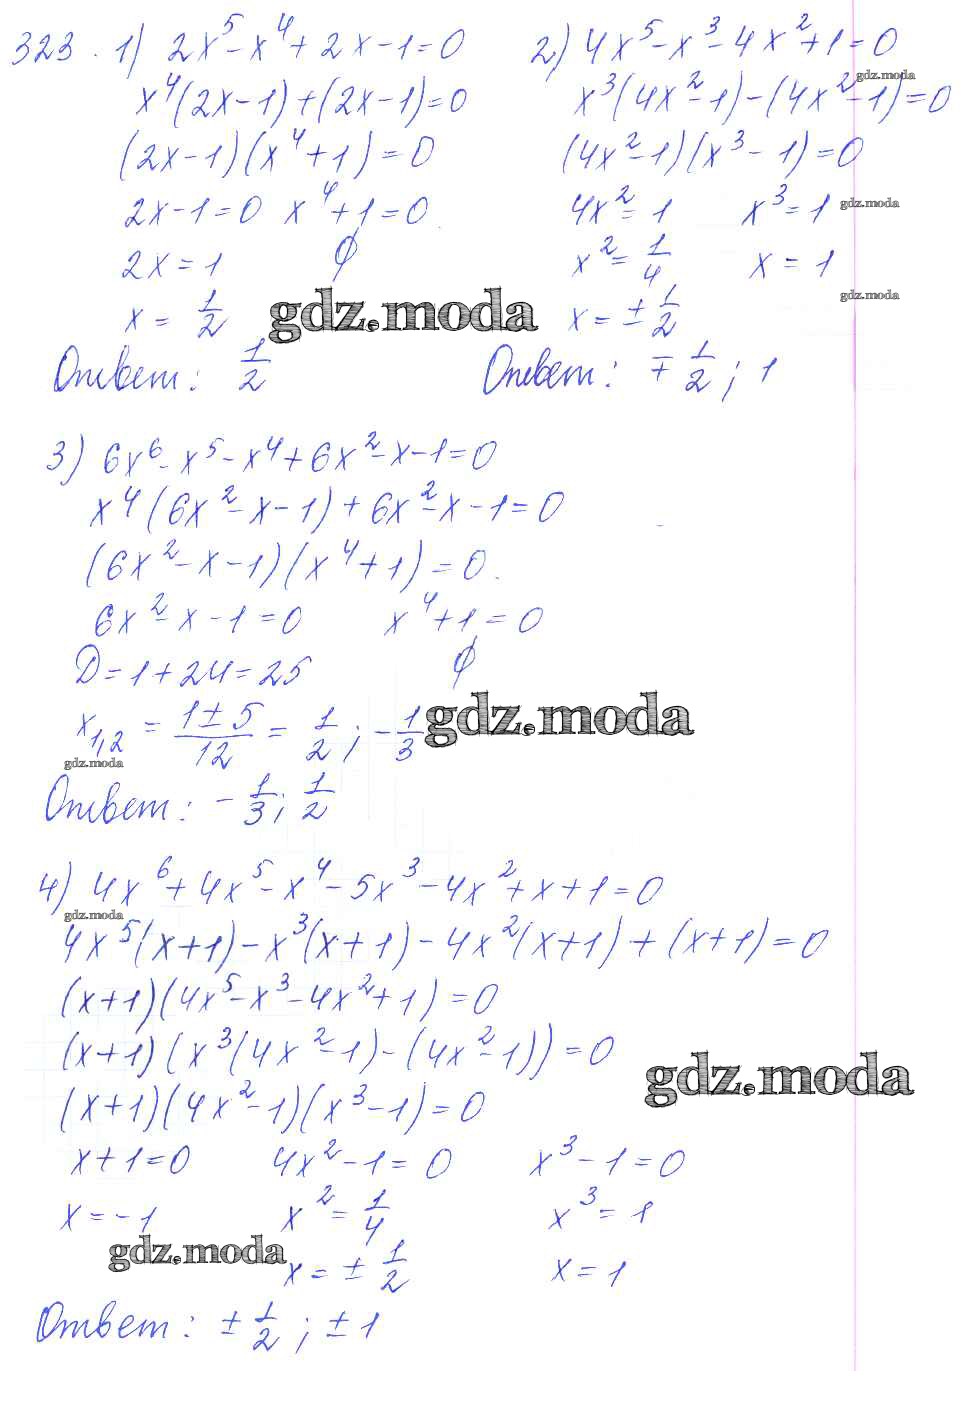 323. 1) 2x⁵ - x⁴ + 2x - 1 = 0
x⁴(2x - 1) + (2x - 1) = 0
(2x - 1)(x⁴ + 1) = 0
2x - 1 = 0 x⁴ + 1 = 0
2x = 1 ∅
x = 1/2
Ответ: 1/2
2) 4x⁵ - x³ - 4x² + 1 = 0
gdz.moda
x³(4x² - 1) - (4x² - 1) = 0
(4x² - 1)(x³ - 1) = 0
4x² = 1 x³ = 1 gdz.moda
x² = 1/4 x = 1
gdz.moda
x = ± 1/2
gdz.moda
Ответ: ∓ 1/2 ; 1
3) 6x⁶ - x⁵ - x⁴ + 6x² - x - 1 = 0
x⁴(6x² - x - 1) + 6x² - x - 1 = 0
(6x² - x - 1)(x⁴ + 1) = 0.
6x² - x - 1 = 0 x⁴ + 1 = 0
D = 1 + 24 = 25 ∅
x₁,₂ = (1 ± 5)/12 = 1/2 ; - 1/3 gdz.moda
gdz.moda
Ответ: - 1/3 ; 1/2
4) 4x⁶ + 4x⁵ - x⁴ - 5x³ - 4x² + x + 1 = 0
gdz.moda
4x⁵(x + 1) - x³(x + 1) - 4x²(x + 1) + (x + 1) = 0
(x + 1)(4x⁵ - x³ - 4x² + 1) = 0
(x + 1)(x³(4x² - 1) - (4x² - 1)) = 0
gdz.moda
(x + 1)(4x² - 1)(x³ - 1) = 0
x + 1 = 0 4x² - 1 = 0 x³ - 1 = 0
x = -1 x² = 1/4 x³ = 1
gdz.moda
x = ± 1/2 x = 1
Ответ: ± 1/2 ; ± 1